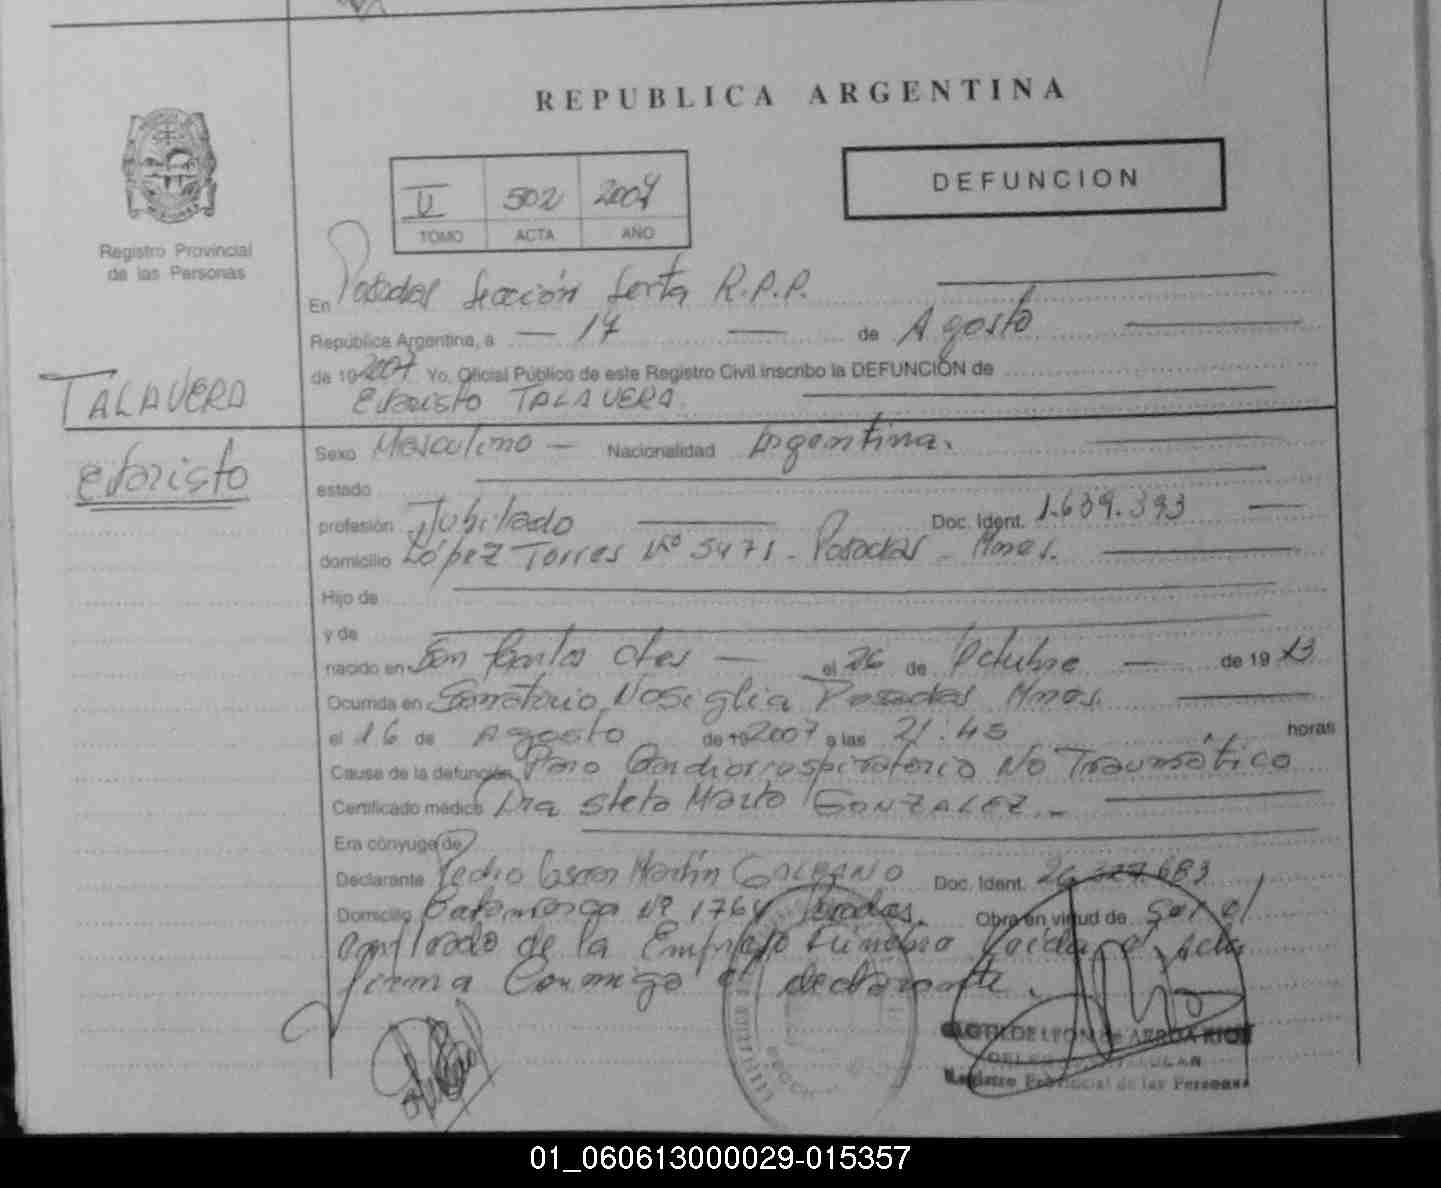 REPUBLICA ARGENTINA
DEFUNCION
II 502 2007
TOMO ACTA AÑO
Registro Provincial
de las Personas
En Posadas Sección Sexta R.P.P.
República Argentina, a 17 de Agosto
de 19 2007 Yo, Oficial Público de este Registro Civil inscribo la DEFUNCIÓN de
TALAVERA
Evaristo TALAVERA
Evaristo
Sexo Masculino Nacionalidad Argentina.
estado
profesión Jubilado Doc. Ident. 1.639.393
domicilio López Torres Nº 5471 - Posadas - Mnes.
Hijo de
y de
nacido en San Carlos Ctes el 26 de Octubre de 19 13
Ocurrida en Sanatorio Nosiglia Posadas Mnes.
el 16 de Agosto de 19 2007 a las 21:45 horas
Causa de la defunción Paro Cardiorrespiratorio No Traumático
Certificado médico Dra Stela Marto GONZALEZ.-
Era cónyuge de
Declarante Pedro Martín GALEANO Doc. Ident. 26.327.683
Domicilio Catamarca Nº 1764 Posadas. Obra en virtud de Ser el
de la Empresa Fúnebre Leída el Acta
firma Conmigo el declarante.
CLOTILDE LEON de ARROA RIOS
Registro Provincial de las Personas
01_060613000029-015357